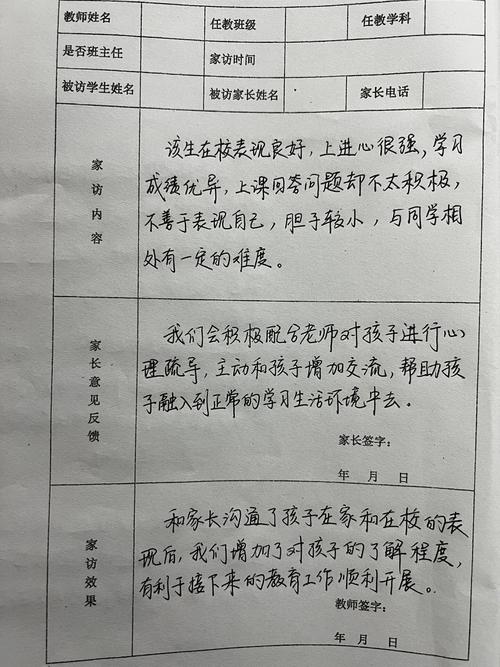 教师姓名 任教班级 任教学科
是否班主任 家访时间
被访学生姓名 被访家长姓名 家长电话
家访内容
该生在校表现良好，上进心很强，学习
成绩优异，上课回答问题却不太积极，
不善于表现自己，胆子较小，与同学相
处有一定的难度。
家长意见反馈
我们会积极配合老师对孩子进行心
理疏导，主动和孩子增加交流，帮助孩
子融入到正常的学习生活环境中去。
家长签字：
年 月 日
家访效果
和家长沟通了孩子在家和在校的表
现后，我们增加了对孩子的了解程度，
有利于接下来的教育工作顺利开展。
教师签字：
年 月 日